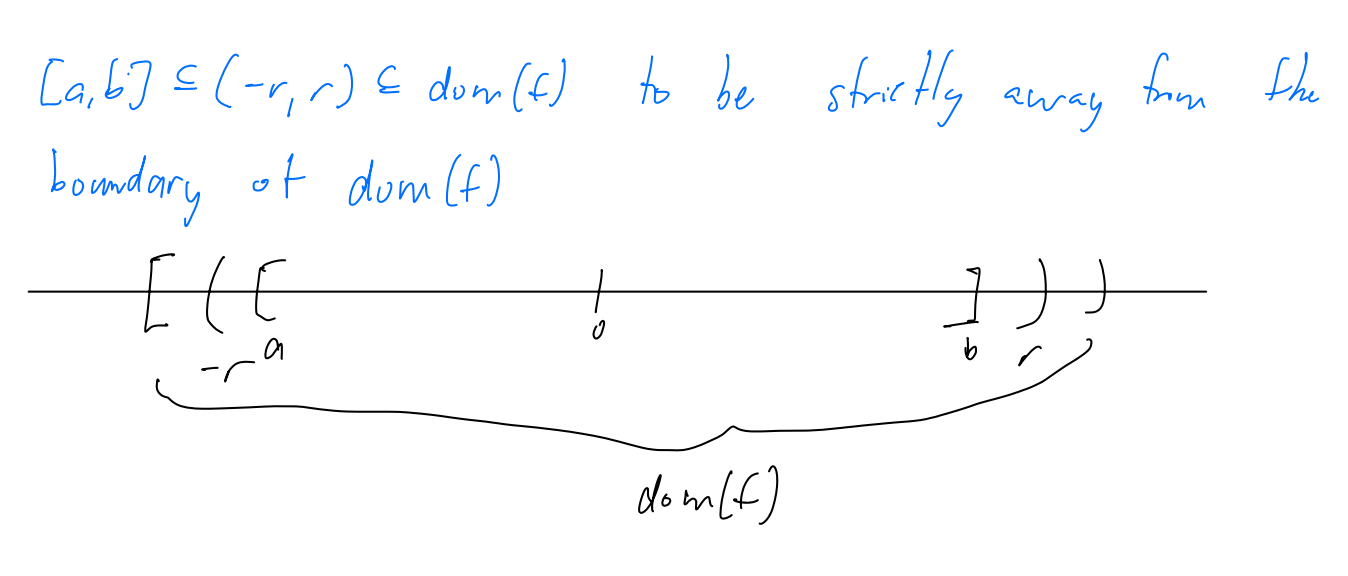 [a,b] ⊆ (-r, r) ⊆ dom(f) to be strictly away from the
boundary of dom(f)
[ ( [ ] ) )
0
-r a b r
dom(f)